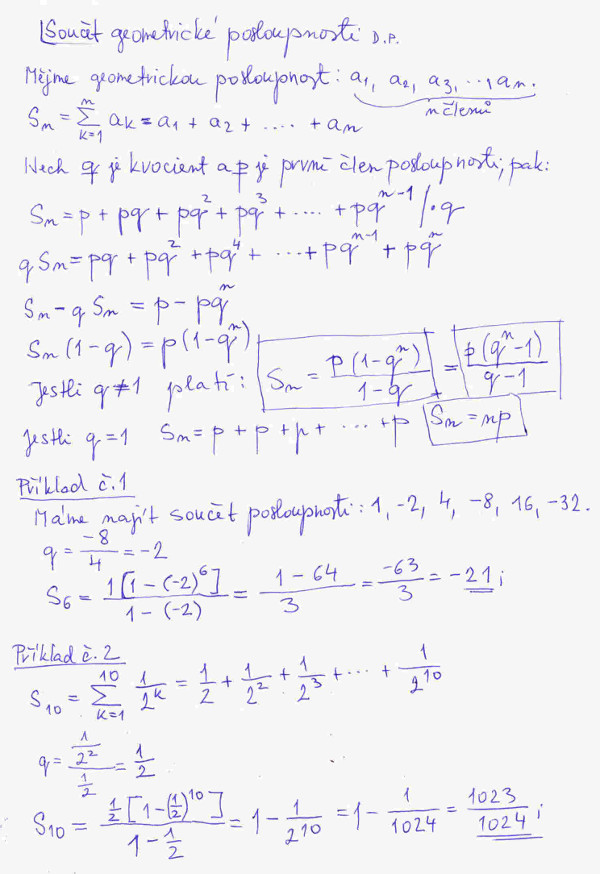 Součet geometrické posloupnosti D.P.
Mějme geometrickou posloupnost: a₁, a₂, a₃, ..., aₙ.
n členů
Sₙ = ∑ₖ₌₁ⁿ aₖ = a₁ + a₂ + .... + aₙ
Nech q je kvocient a p je první člen posloupnosti, pak:
Sₙ = p + pq + pq² + pq³ + .... + pqⁿ⁻¹ /·q
qSₙ = pq + pq² + pq⁴ + ... + pqⁿ⁻¹ + pqⁿ
Sₙ - qSₙ = p - pqⁿ
Sₙ(1-q) = p(1-qⁿ)
Jestli q ≠ 1 platí: Sₙ = p(1-qⁿ)/(1-q) = p(qⁿ-1)/(q-1)
Jestli q = 1 Sₙ = p + p + p + ... + p Sₙ = np
Příklad č.1
Máme najít součet posloupnosti: 1, -2, 4, -8, 16, -32.
q = -8/4 = -2
S₆ = 1[1-(-2)⁶]/(1-(-2)) = (1-64)/3 = -63/3 = -21;
Příklad č.2
S₁₀ = ∑ₖ₌₁¹⁰ 1/2ᵏ = 1/2 + 1/2² + 1/2³ + ... + 1/2¹⁰
q = (1/2²)/(1/2) = 1/2
S₁₀ = ½[1-(½)¹⁰]/(1-½) = 1 - 1/2¹⁰ = 1 - 1/1024 = 1023/1024;